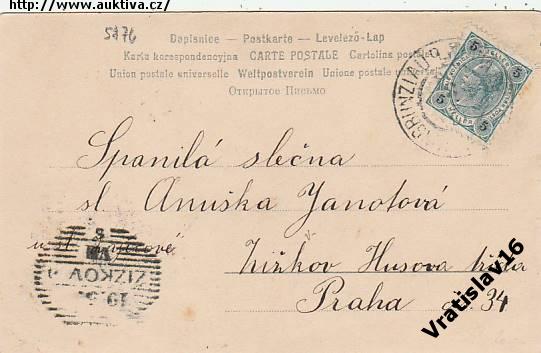 http://www.auktiva.cz/
5376
Dopisnice — Postkarte — Levelező-Lap
Karta korespondencyjna CARTE POSTALE Cartolina postale
Union postale universelle Weltpostverein Unione postale universale
Открытое Письмо
5 5
5 5
Spanilá slečna
sl Anuška Janotová
Žižkov Husova třída
Praha č. 34
ŽIŽKOV
Vratislav16